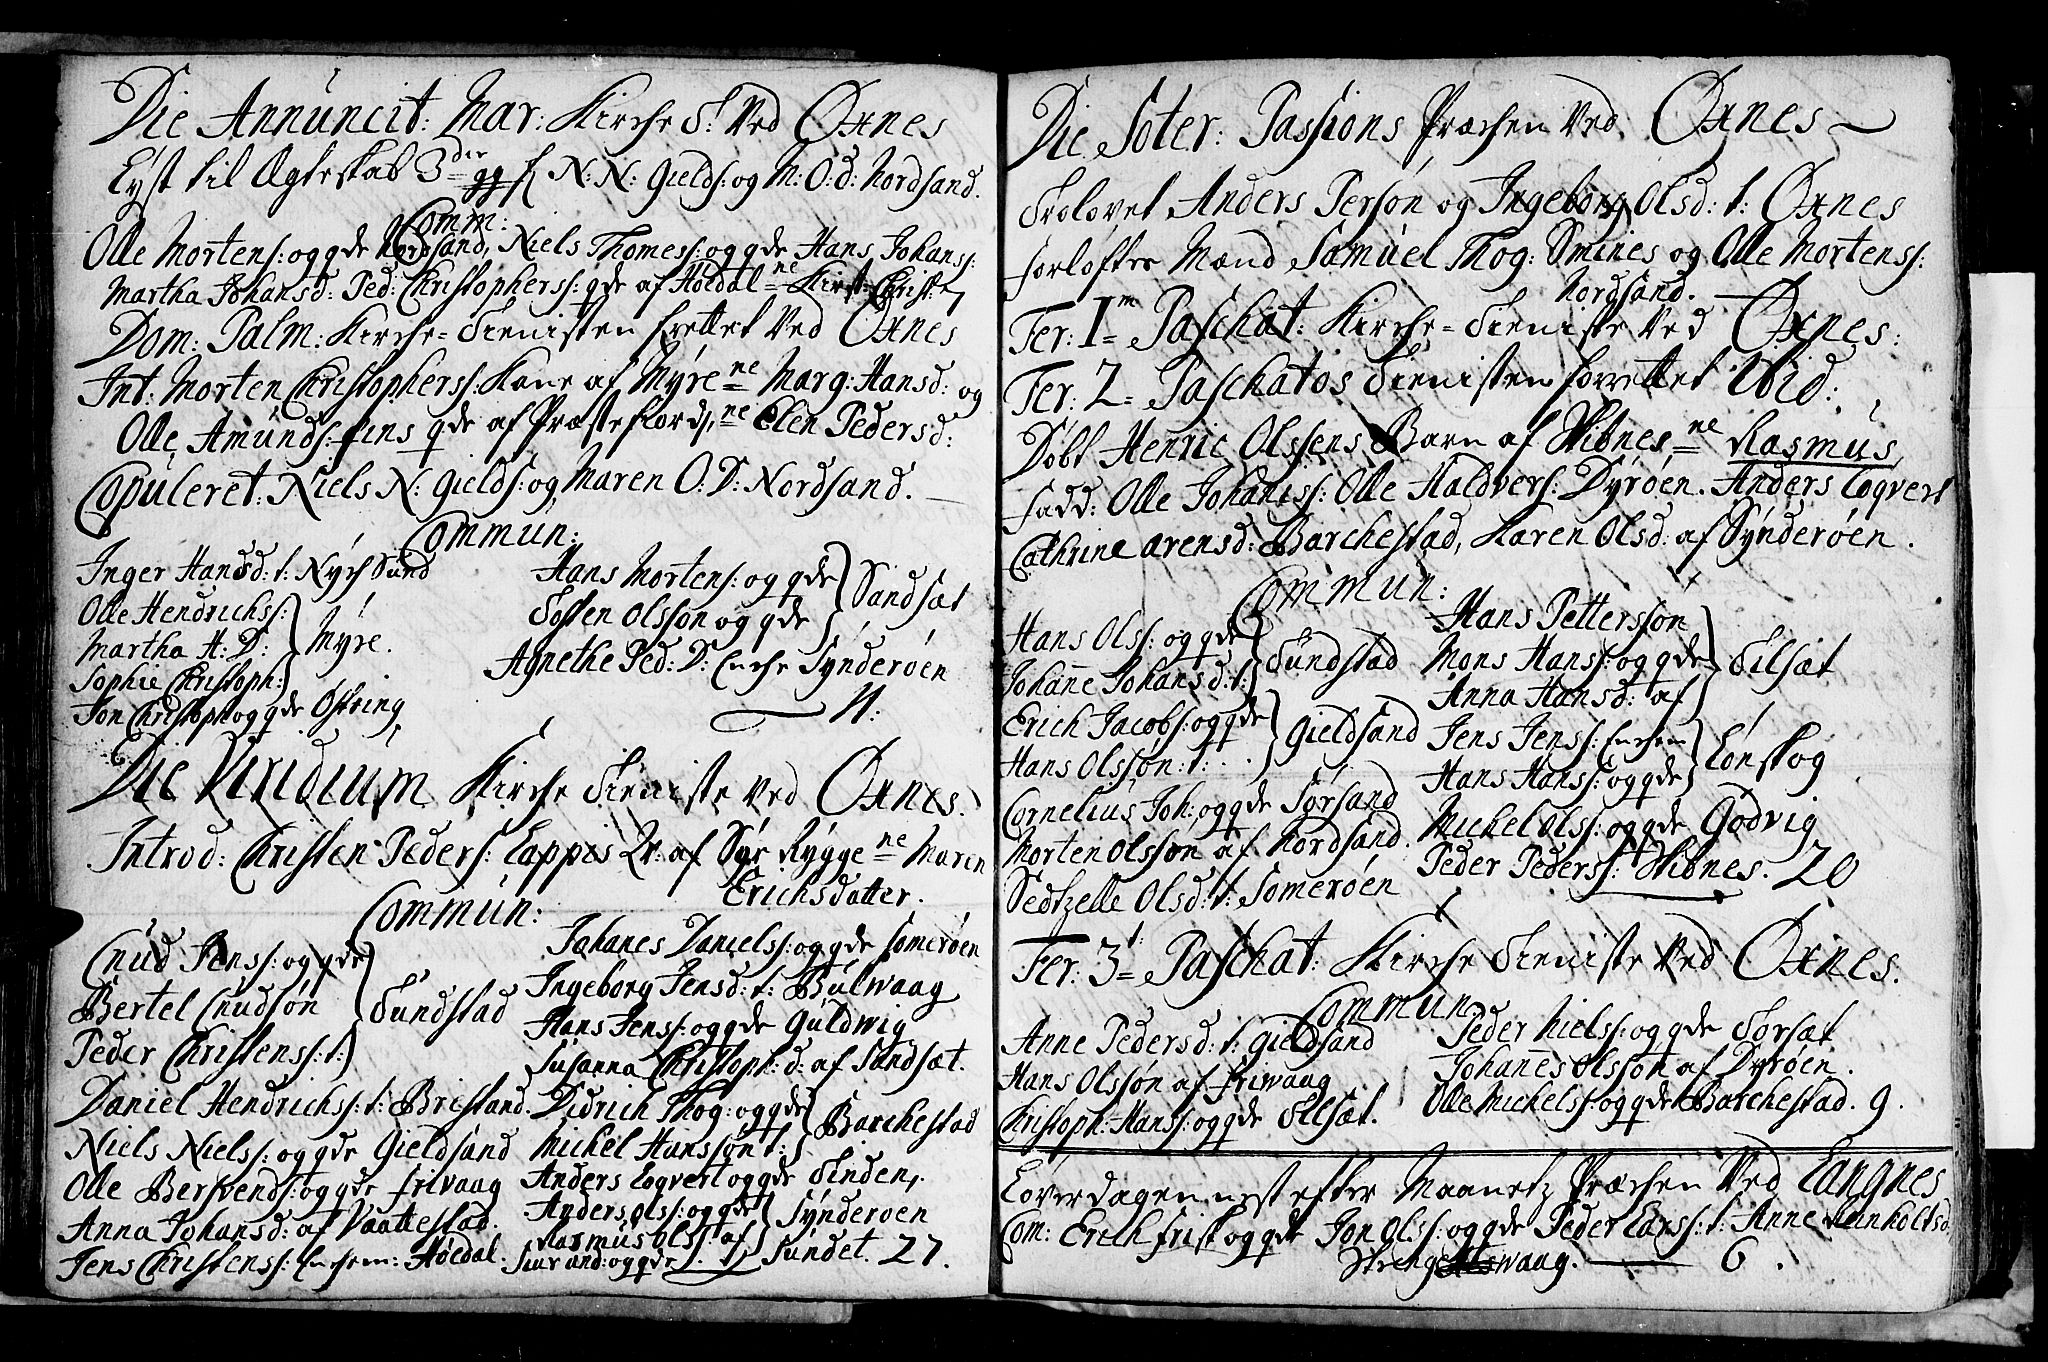 Die Annuncit: Mar: Kirche S: Ved Øxnes
Lyst til Ægteskab 3die gg f N: N: Gields: og M: O: d: Nordsand.
Comm:
Olle Mortens: og qde Nordsand, Niels Thomess: og qde Hans Johanss:
Martha Johansd: Ped: Christophers: qde af Høedal ne Kirst: Christ: 7
Dom: Palm: Kirche-Tienisten forettet Ved Øxnes
Int: Morten Christophers: Kone af Myre ne Marg: Hansd: og
Olle Amunds: fins qde af Præstefiord, ne Elen Pedersd:
Copuleret: Niels N: Gields: og Maren O: D: Nordsand.
Commun:
Inger Hansd: t: Nych Sund
Olle Hendrichs:
Martha H: D: Myre.
Sophie Christoph:
Jon Christoph og qde Østring
Hans Mortens: og qde Sandsæt
Tosten Olsson og qde
Agnethe Ped: D: Enche Synderøen
11:
Die Viridium Kirche Tieniste Ved Øxnes.
Introd: Christen Peders: Lappes Qv: af Syr Rygge ne Maren
Erichsdatter.
Commun:
Cnud Jens: og qde
Bertel Cnudsøn Sundstad
Peder Christens: t:
Daniel Hendrichs: t: Breistand.
Niels Niels: og qde Gieldsand
Olle Bersvends: og qde frivaag
Anna Johansd: af Vaattestad.
Jens Christens: Enchem: Høedal.
Johanes Daniels: og qde Somerøen
Ingeborg Jensd: t: Bulwaag
Hans Jens: og qde Guldwig
Susanna Christoph: d: af Sandsæt.
Didrich Thog: og qde Barchestad
Michel Hanssøn t:
Anders Loqvert og qde Tinden,
Anders Ols: og qde Synderøen
Rasmus Ols: af
og qde Sundet. 27.
Die Soter: Passions Præchen Ved Øxnes
Trolovet Anders Persøn og Ingeborg Olsd: t: Øxnes
forlofter Mænd Samuel Thog: Smines og Olle Mortens:
Nordsand.
Fer: 1m Paschat: Kirche-Tieniste Ved Øxnes:
Fer: 2 Paschatos Tienisten forrettet Ibid:
Døbt Henric Olssens Barn af Skibnes, ne Rasmus
fadd: Olle Johans: Olle Haldvers: Dyrøen. Anders Loqvert
Cathrine Arensd: Barchestad, Karen Olsd: af Synderøen.
Commun:
Hans Ols: og qde Sundstad
Johanne Johansd: t:
Erich Jacobs: og qde Gieldsand
Hans Olssøn: t:
Cornelius Joh: og qde Sørsand
Morten Olssøn af Nordsand.
Sedtzelle Olsd: t: Somerøen
Hans Petterssøn
Mons Hans: og qde Tilsæt
Anna Hansd: af
Jens Jens: Enchem Lønskog
Hans Hans: og qde
Michel Ols: og qde Godvig
Peder Peders: Skibnes. 20
Fer: 3 Paschat: Kirche Tieniste Ved Øxnes.
Commun:
Anne Pedersd: t: Gieldsand
Hans Olssøn af frivaag
Christoph: Hans: og qde Tilsæt.
Peder Niels: og qde Sørsæt
Johannes Olssøn af Dyrøen.
Olle Michels: og qde Barchestad. 9.
Løverdagen nest efter Maanetz Præchen Ved Langnes
Com: Erich frisk og qde Jon Ols: og qde Peder Lars: t: Anne Reinholtsd
Strengelswaag. 6.